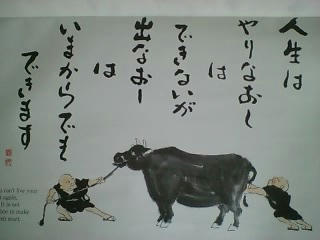 人生は
やりなおし
は
できないが
出なおし
は
いまからでも
できます
can't live your
again.
It is not
to make
start.